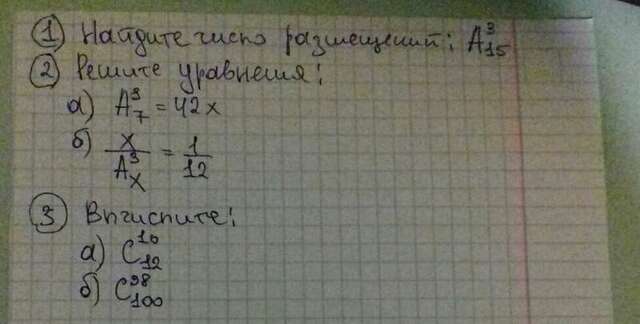 ① Найдите число размещений: A³₁₅
② Решите уравнения:
а) A³₇ = 42x
б) x/A³ₓ = 1/12
③ Вычислите:
а) C¹⁰₁₂
б) C⁹⁸₁₀₀